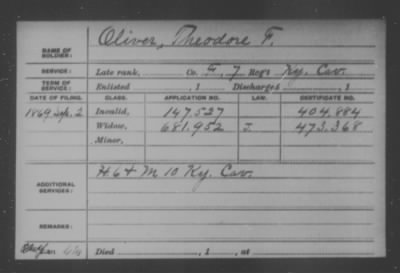 NAME OF SOLDIER: Oliver, Theodore F.
SERVICE: Late rank, Co. F, 7 Reg't Ky. Cav.
TERM OF SERVICE: Enlisted , 1 Discharged , 1
DATE OF FILING. CLASS. APPLICATION NO. LAW. CERTIFICATE NO.
1869, 2 Invalid, 147.527 404.884
Widow, 681.952 J. 473.368
Minor,
ADDITIONAL SERVICES: H 6 & M 10 Ky. Cav.
REMARKS:
Died , 1 , at